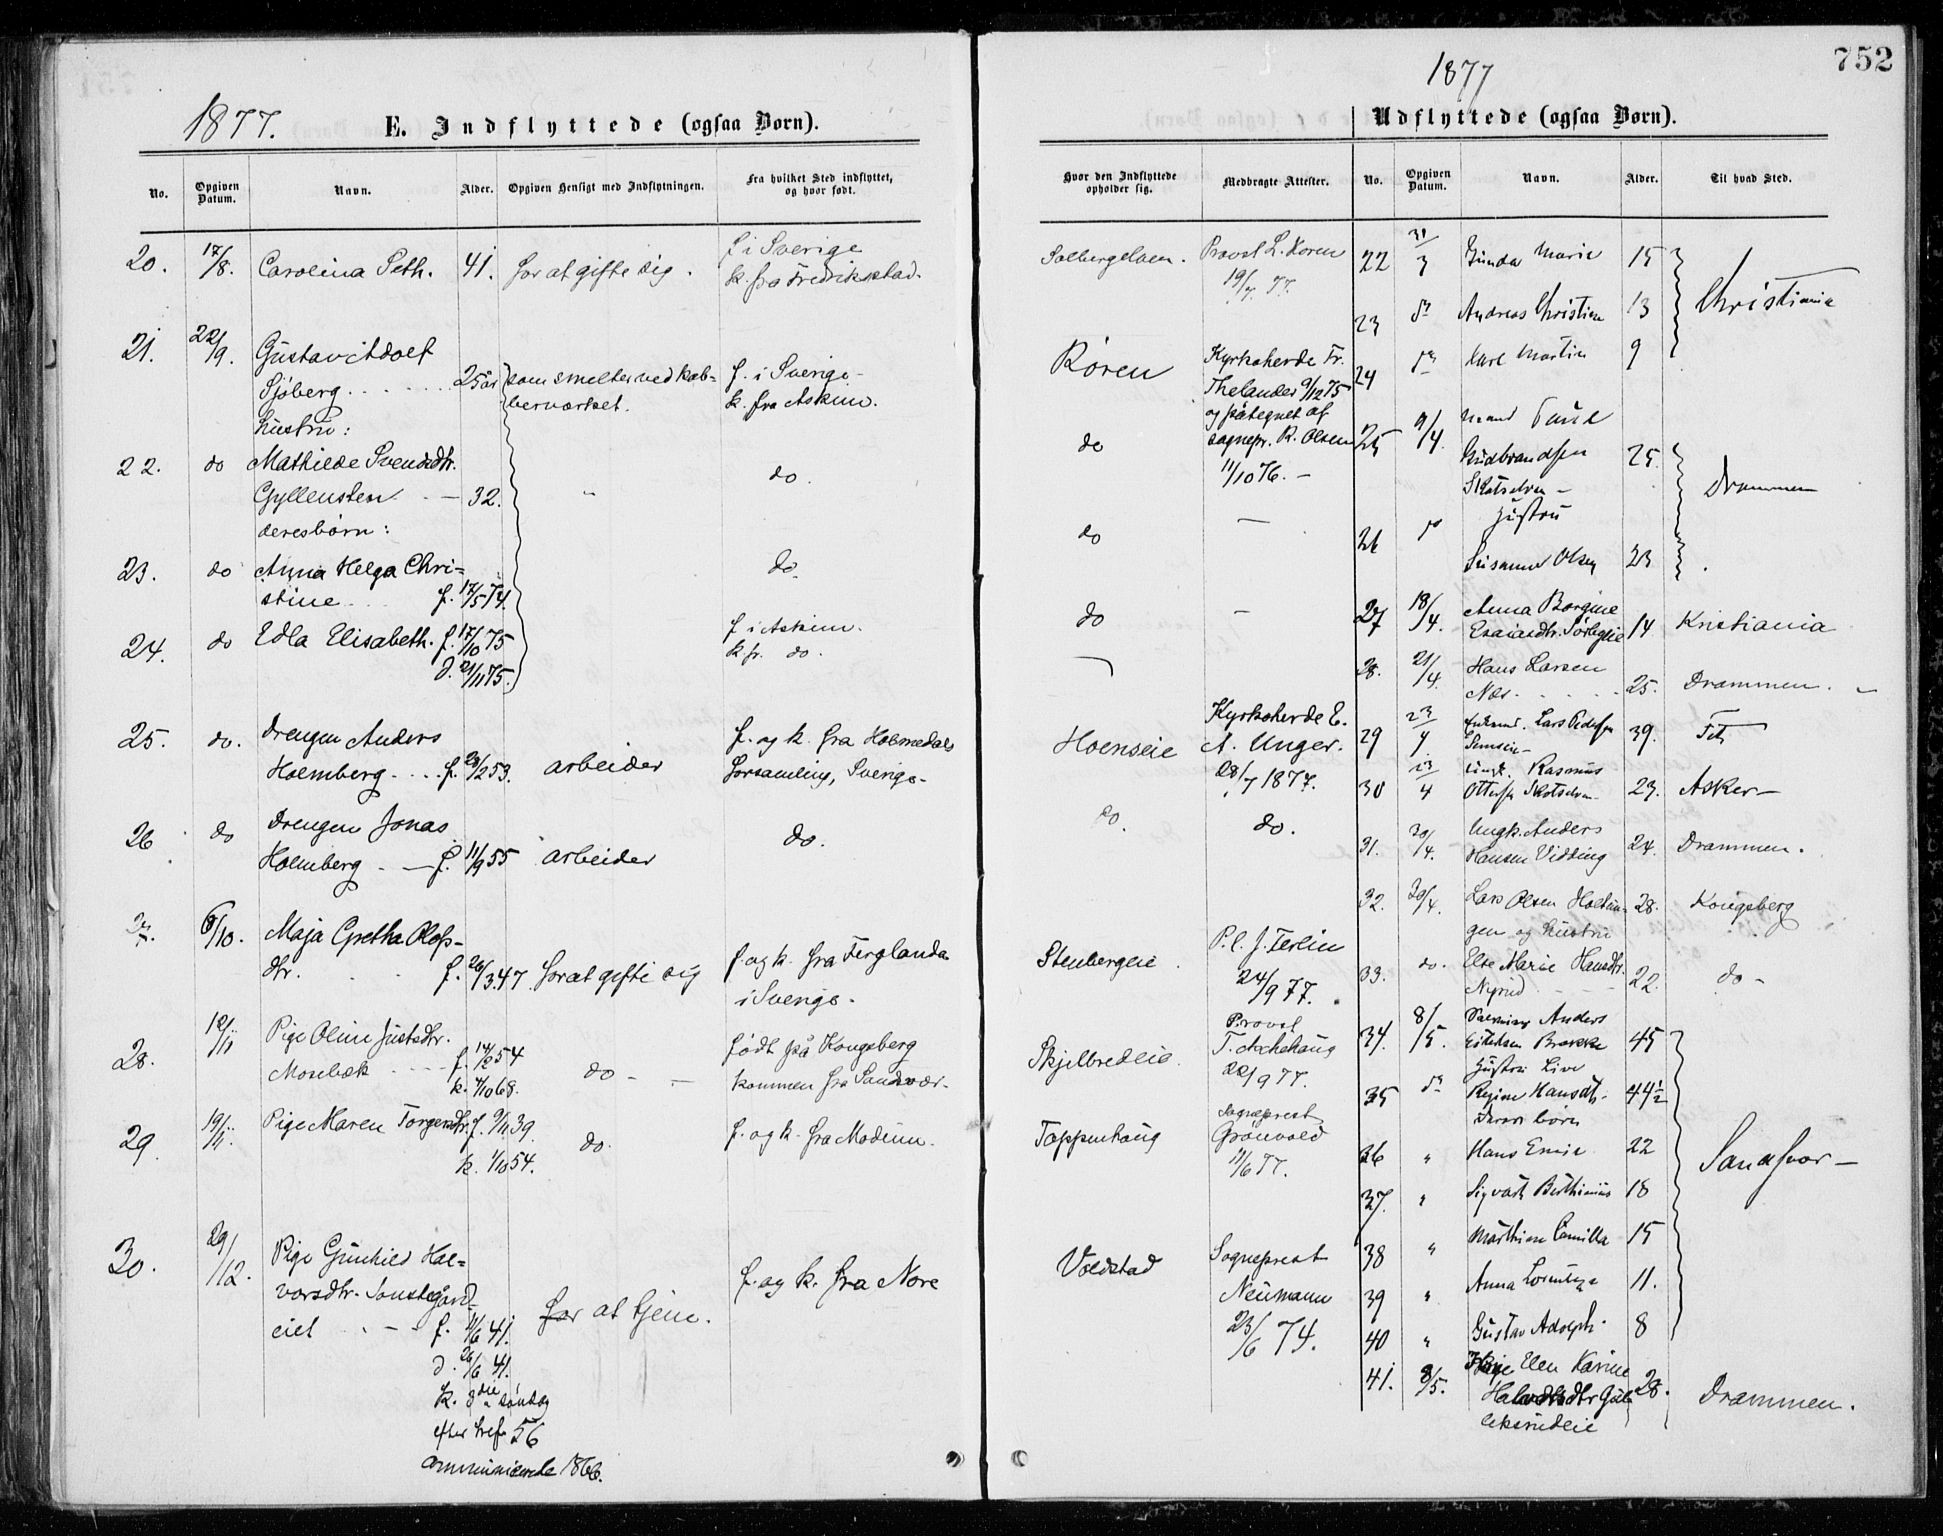 1877.
E. Indflyttede (ogsaa Børn).
No.
Opgiven Datum.
Navn.
Alder.
Opgiven Hensigt med Indflytningen.
Fra hvilket Sted indflyttet, og hvor født.
20. 17/8. Carolina Seth. 41. for at gifte sig. f. i Sverige
k. fra Fredrikstad.
21. 22/9. Gustav Adolf
Sjöberg 25 år som smelter ved kob- f. i Sverige
berværket. k. fra Askim.
hustru:
22. do Mathilde Svendsdtr. do.
Gyllensten — 32. "
deres børn:
23. do Anna Helga Chri= do.
stine f. 17/5 74.
24. do Edla Elisabeth. f. 17/10 75 f. i Askim.
d. 21/11 75. k. fr. do.
25. do. Drengen Anders f. og k. fra Holmedals
Holmberg f. 23/2 53. arbeider forsamling, Sverige.
26 do Drengen Jonas do.
Holmberg — f. 11/9 55 arbeider
27. 6/10. Maja Gretha Olofs-
dtr. f. 26/3 47 for at gifte sig f. og k. fra Ferglanda
i Sverige.
28. 12/11 Pige Oline Justsdtr. født på Kongsberg
Mosebæk f. 14/2 54 do — kommen fra Sandsvær.
k. 4/10 68.
29. 19/11. Pige Maren Torgersdtr. f. 9/11 39. do. f. og k. fra Modum.
k. 1/10 54.
30. 29/12. Pige Gunhild Hal= f. og k. fra Nore
vorsdtr.
eiet f. 11/6 41. for at tjene.
d. 26/6 41.
k. søndag
efter 56
1866.
1877
752
Udflyttede (ogsaa Børn).
Hvor den Indflyttede opholder sig.
Medbragte Attester.
No.
Opgiven Datum.
Navn.
Alder.
Til hvad Sted.
Solbergelven. Provst L. Koren 22 31/3 Gunda Marie 15
19/7. 77.
23 do Andreas Christian 13 Christiania
Røren Kyrkoherde Fr. 24 do Karl Martin 9
Thelander 9/12 75
og påtegnet af
do sognepr. R. Olsen 25 9/4.
11/10 76. — Gudbrandsen 25. Drammen
Skotselven —
do — 26 do Hustru
Susanne Olsen 23
do — 27 18/4. Anna Borgine
Esaiasdtr. 14 Kristiania
28. 21/4. Hans Larsen
Næs 25. Drammen.
Hoenseie Kyrkoherde E. 29 23/4 Lars Pedersen 39. Fet
A. Unger.
28/7 1877. 30 23/4 Ungk. Rasmus
Ottersen Skotselven 23. Asker —
do. do. 31. 30/4. Ungk. Anders
Hansen Vidding 24. Drammen.
32. 30/4. Lars Olsen 28. Kongsberg
gen og hustru
Stenbergeie. P. l. J. Terlin 33. do. Else Marie Hansdtr.
24/9 77. Nyrud 22. do —
Skjelbredeie Provst 34. 8/5. Anders
T. Aschehoug Brække 45
22/9 77. Hustru Live
35 do Regine Hansdtr. 44½
deres børn
Toppenhaug Sogneprest
Grønvold 36 " Hans Emil 22 Sandsvær —
11/6 77.
37. " Sigvart Berthinius 18
38 " Marthine Camilla 15
Voldstad Sogneprest
Neumann 39 " Anna 11.
23/6 74. 40 " Gustav Adolph 8
41. 8/5. Pige Elen Karine
28. Drammen.